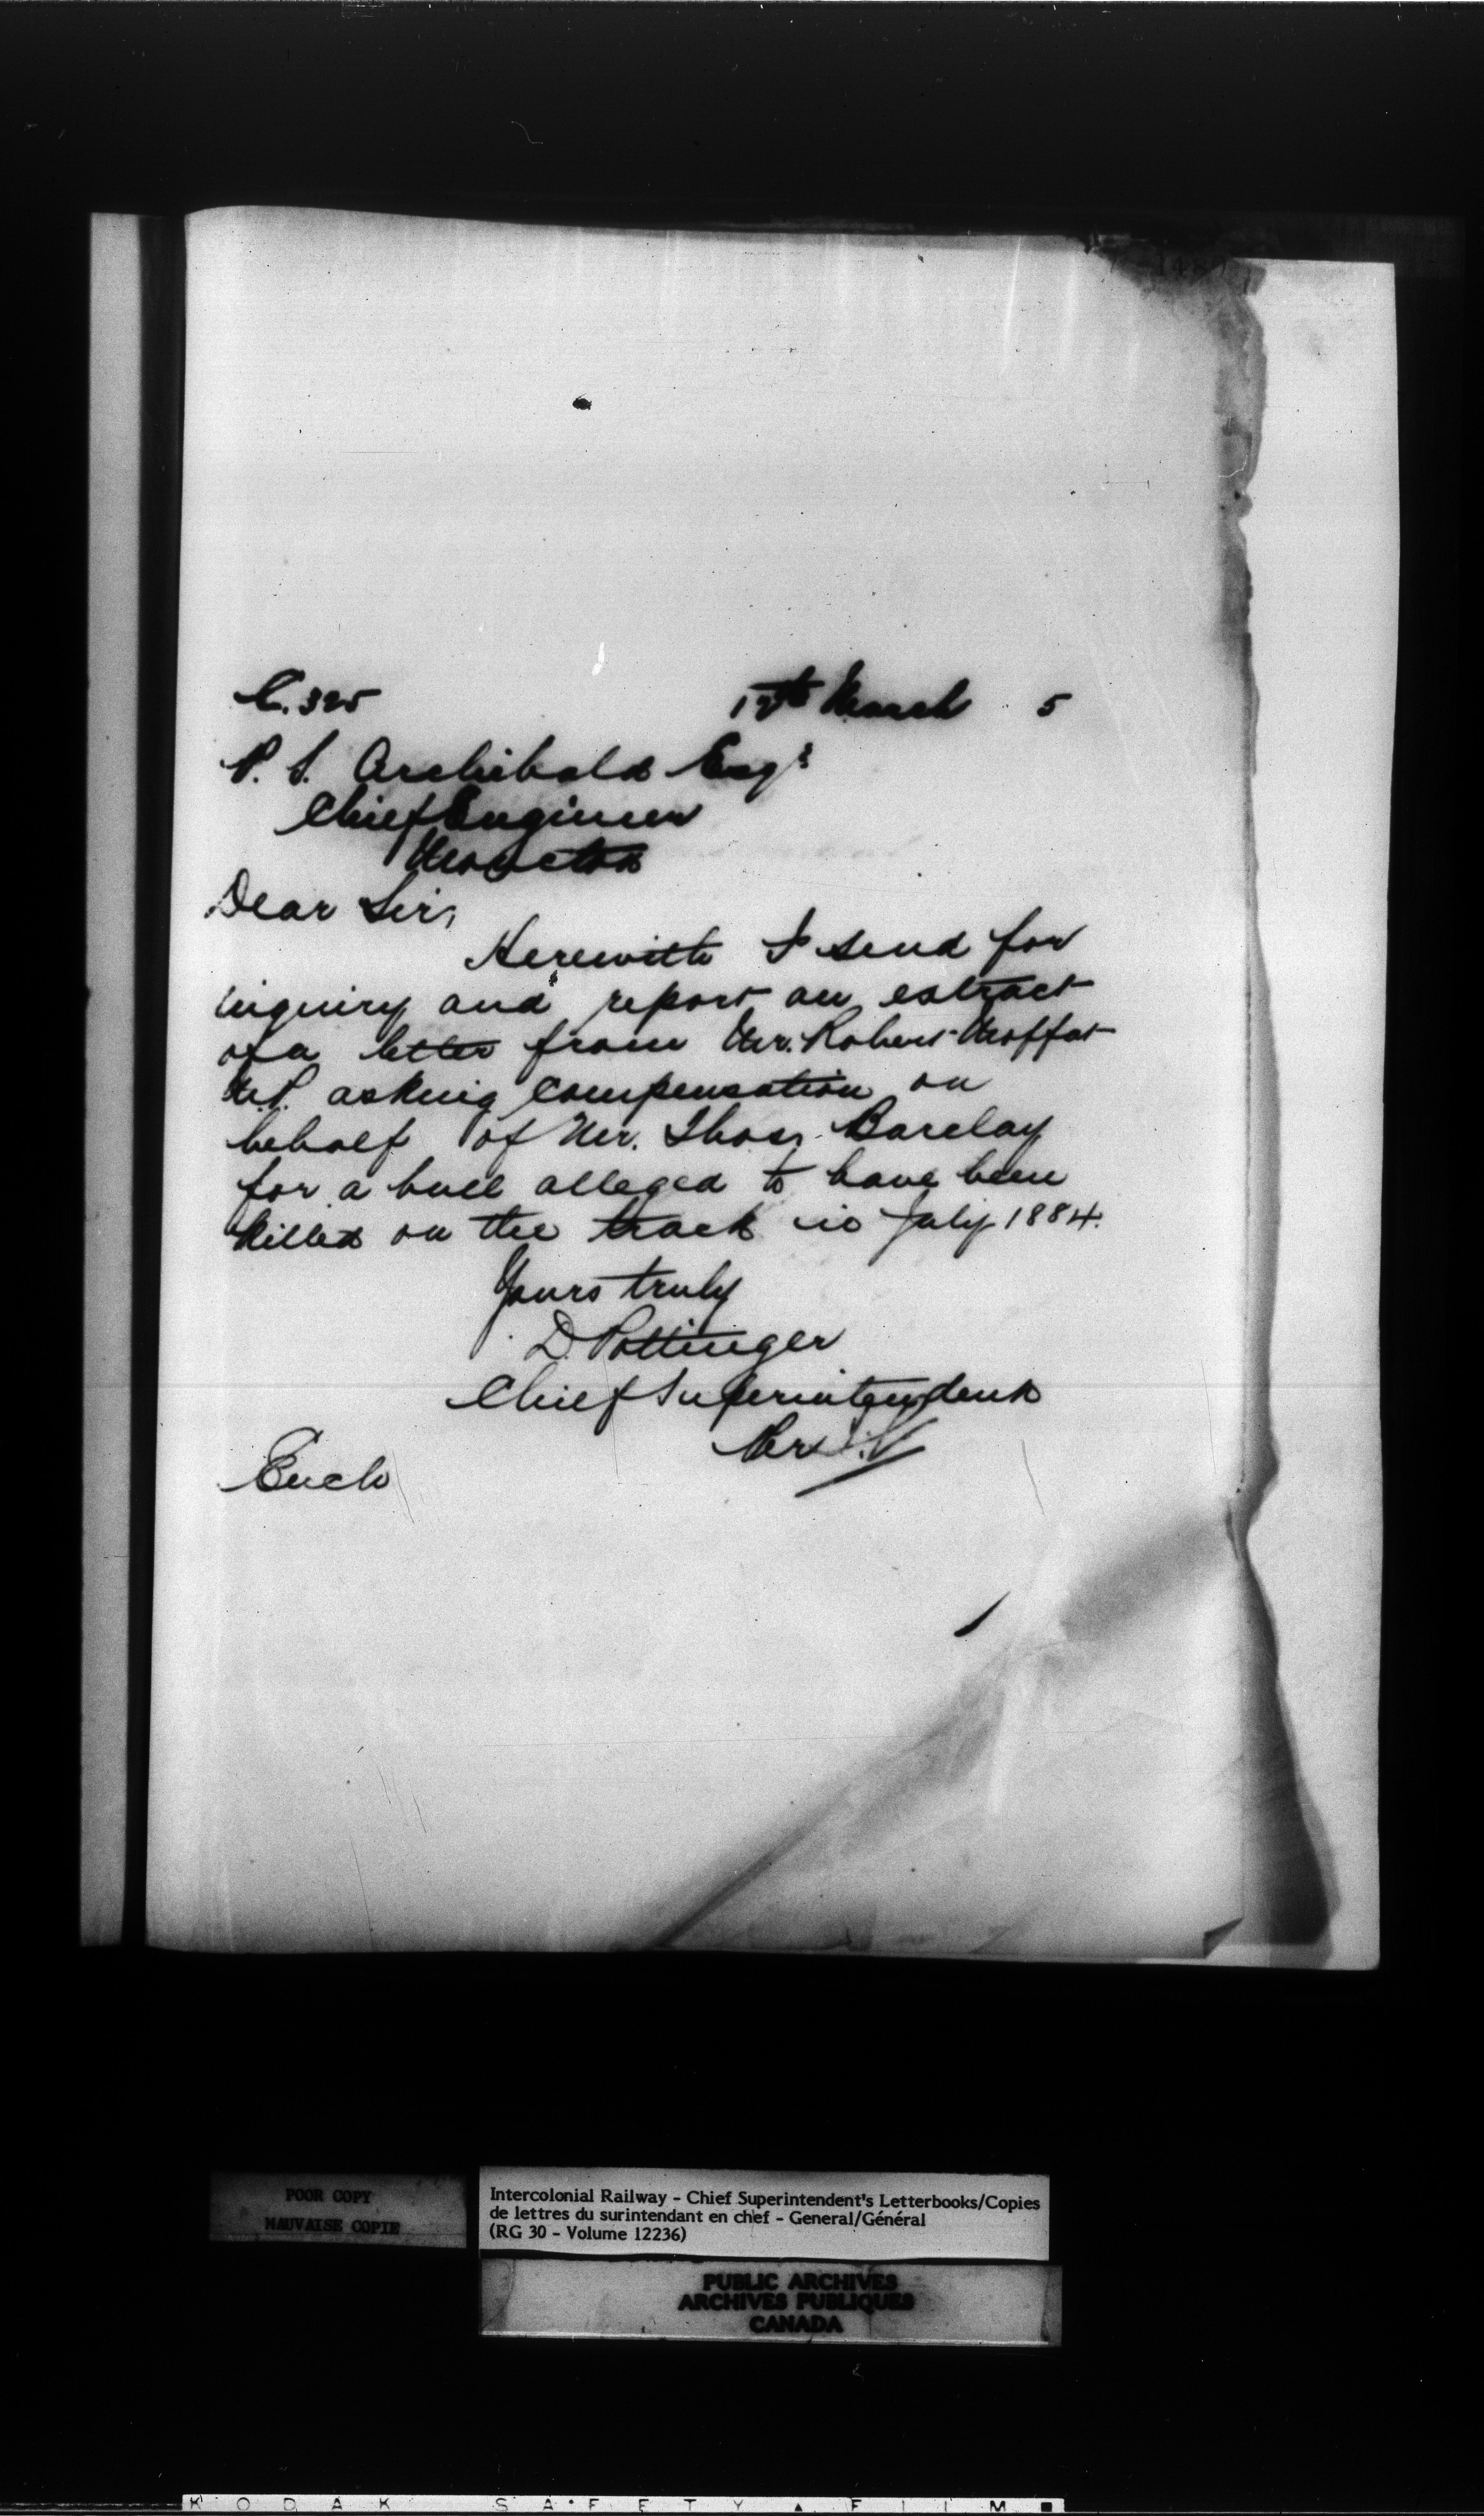 C. 325
March 5
P. S. Archibald Esqr
Chief Engineer
Moncton
Dear Sir,
Herewith I send for
inquiry and report an extract
of a letter from Mr. Robert Moffat
M.P. asking compensation on
behalf of Mr. Thos. Barclay
for a bull alleged to have been
killed on the track in July 1884.
Yours truly
D. Pottinger
Chief Superintendent
Per
Encl
POOR COPY
MAUVAISE COPIE
Intercolonial Railway - Chief Superintendent's Letterbooks/Copies
de lettres du surintendant en chef - General/Général
(RG 30 - Volume 12236)
PUBLIC ARCHIVES
ARCHIVES PUBLIQUES
CANADA
KODAK SAFETY FILM